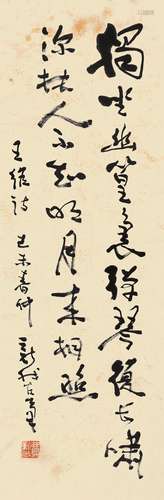 獨坐幽篁裏彈琴復長嘯
深林人不知明月來相照
王維詩 己未春仲 新我左筆